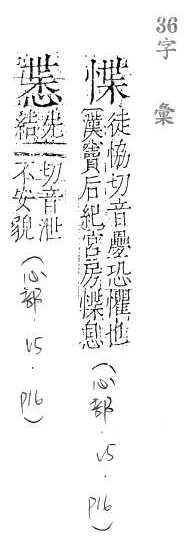 36字彙
惵
徒協切音疊恐懼也
漢竇后紀宮房惵息
(心部.V5.P16)
先結切音泄
不安貌
(心部.V5.P16)